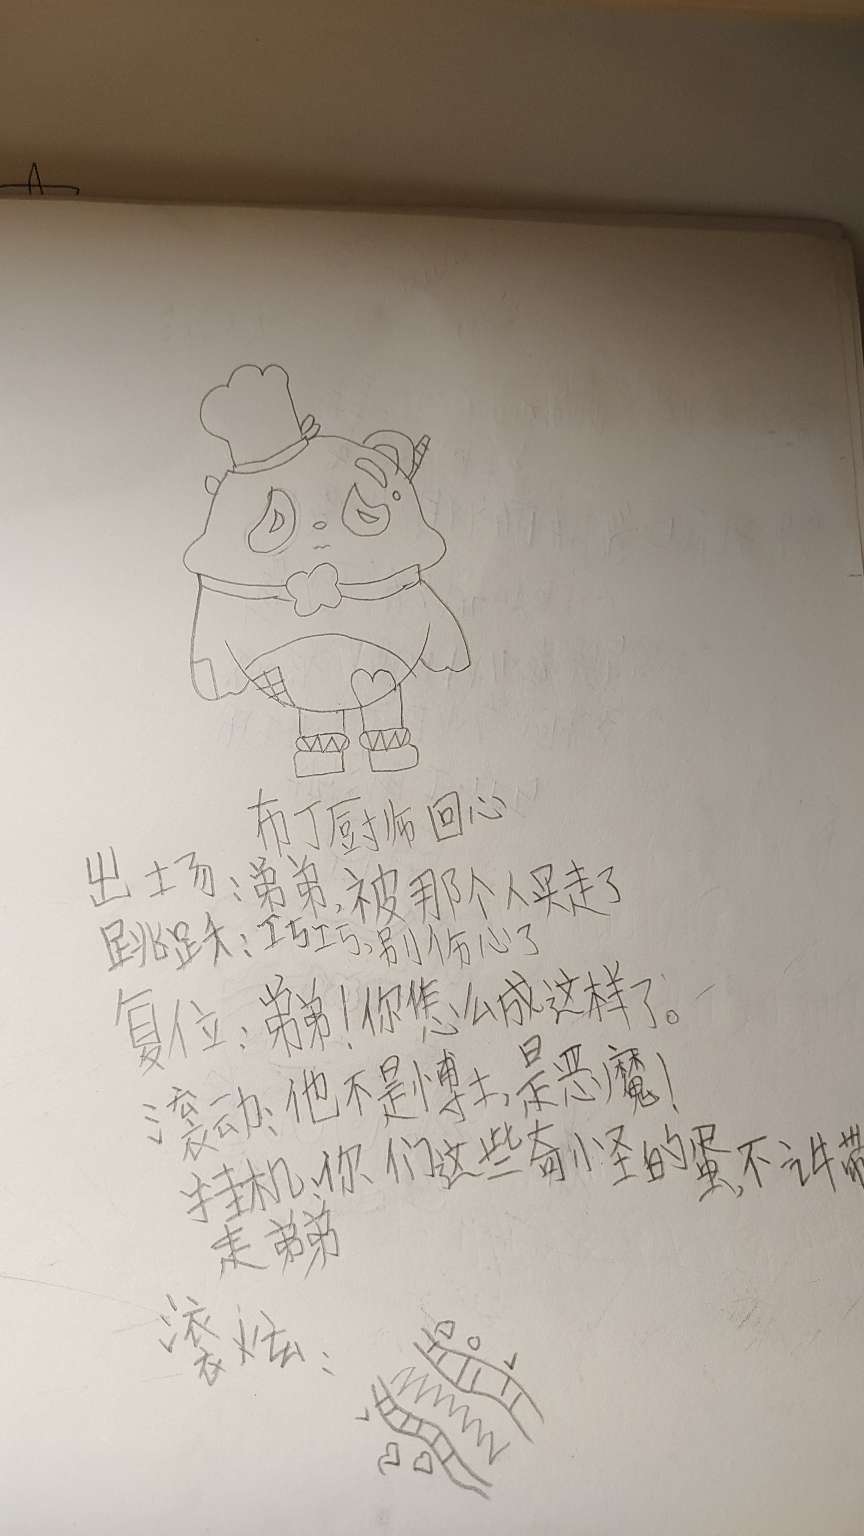 布丁厨师回心
出土场:弟弟,被那个人买走了
跳跃:巧巧,别伤心了
复位:弟弟!你怎么成这样了。
滚动:他不是博士,是恶魔!
挂机:你们这些奇怪的蛋,不许带
走弟弟
滚炫: